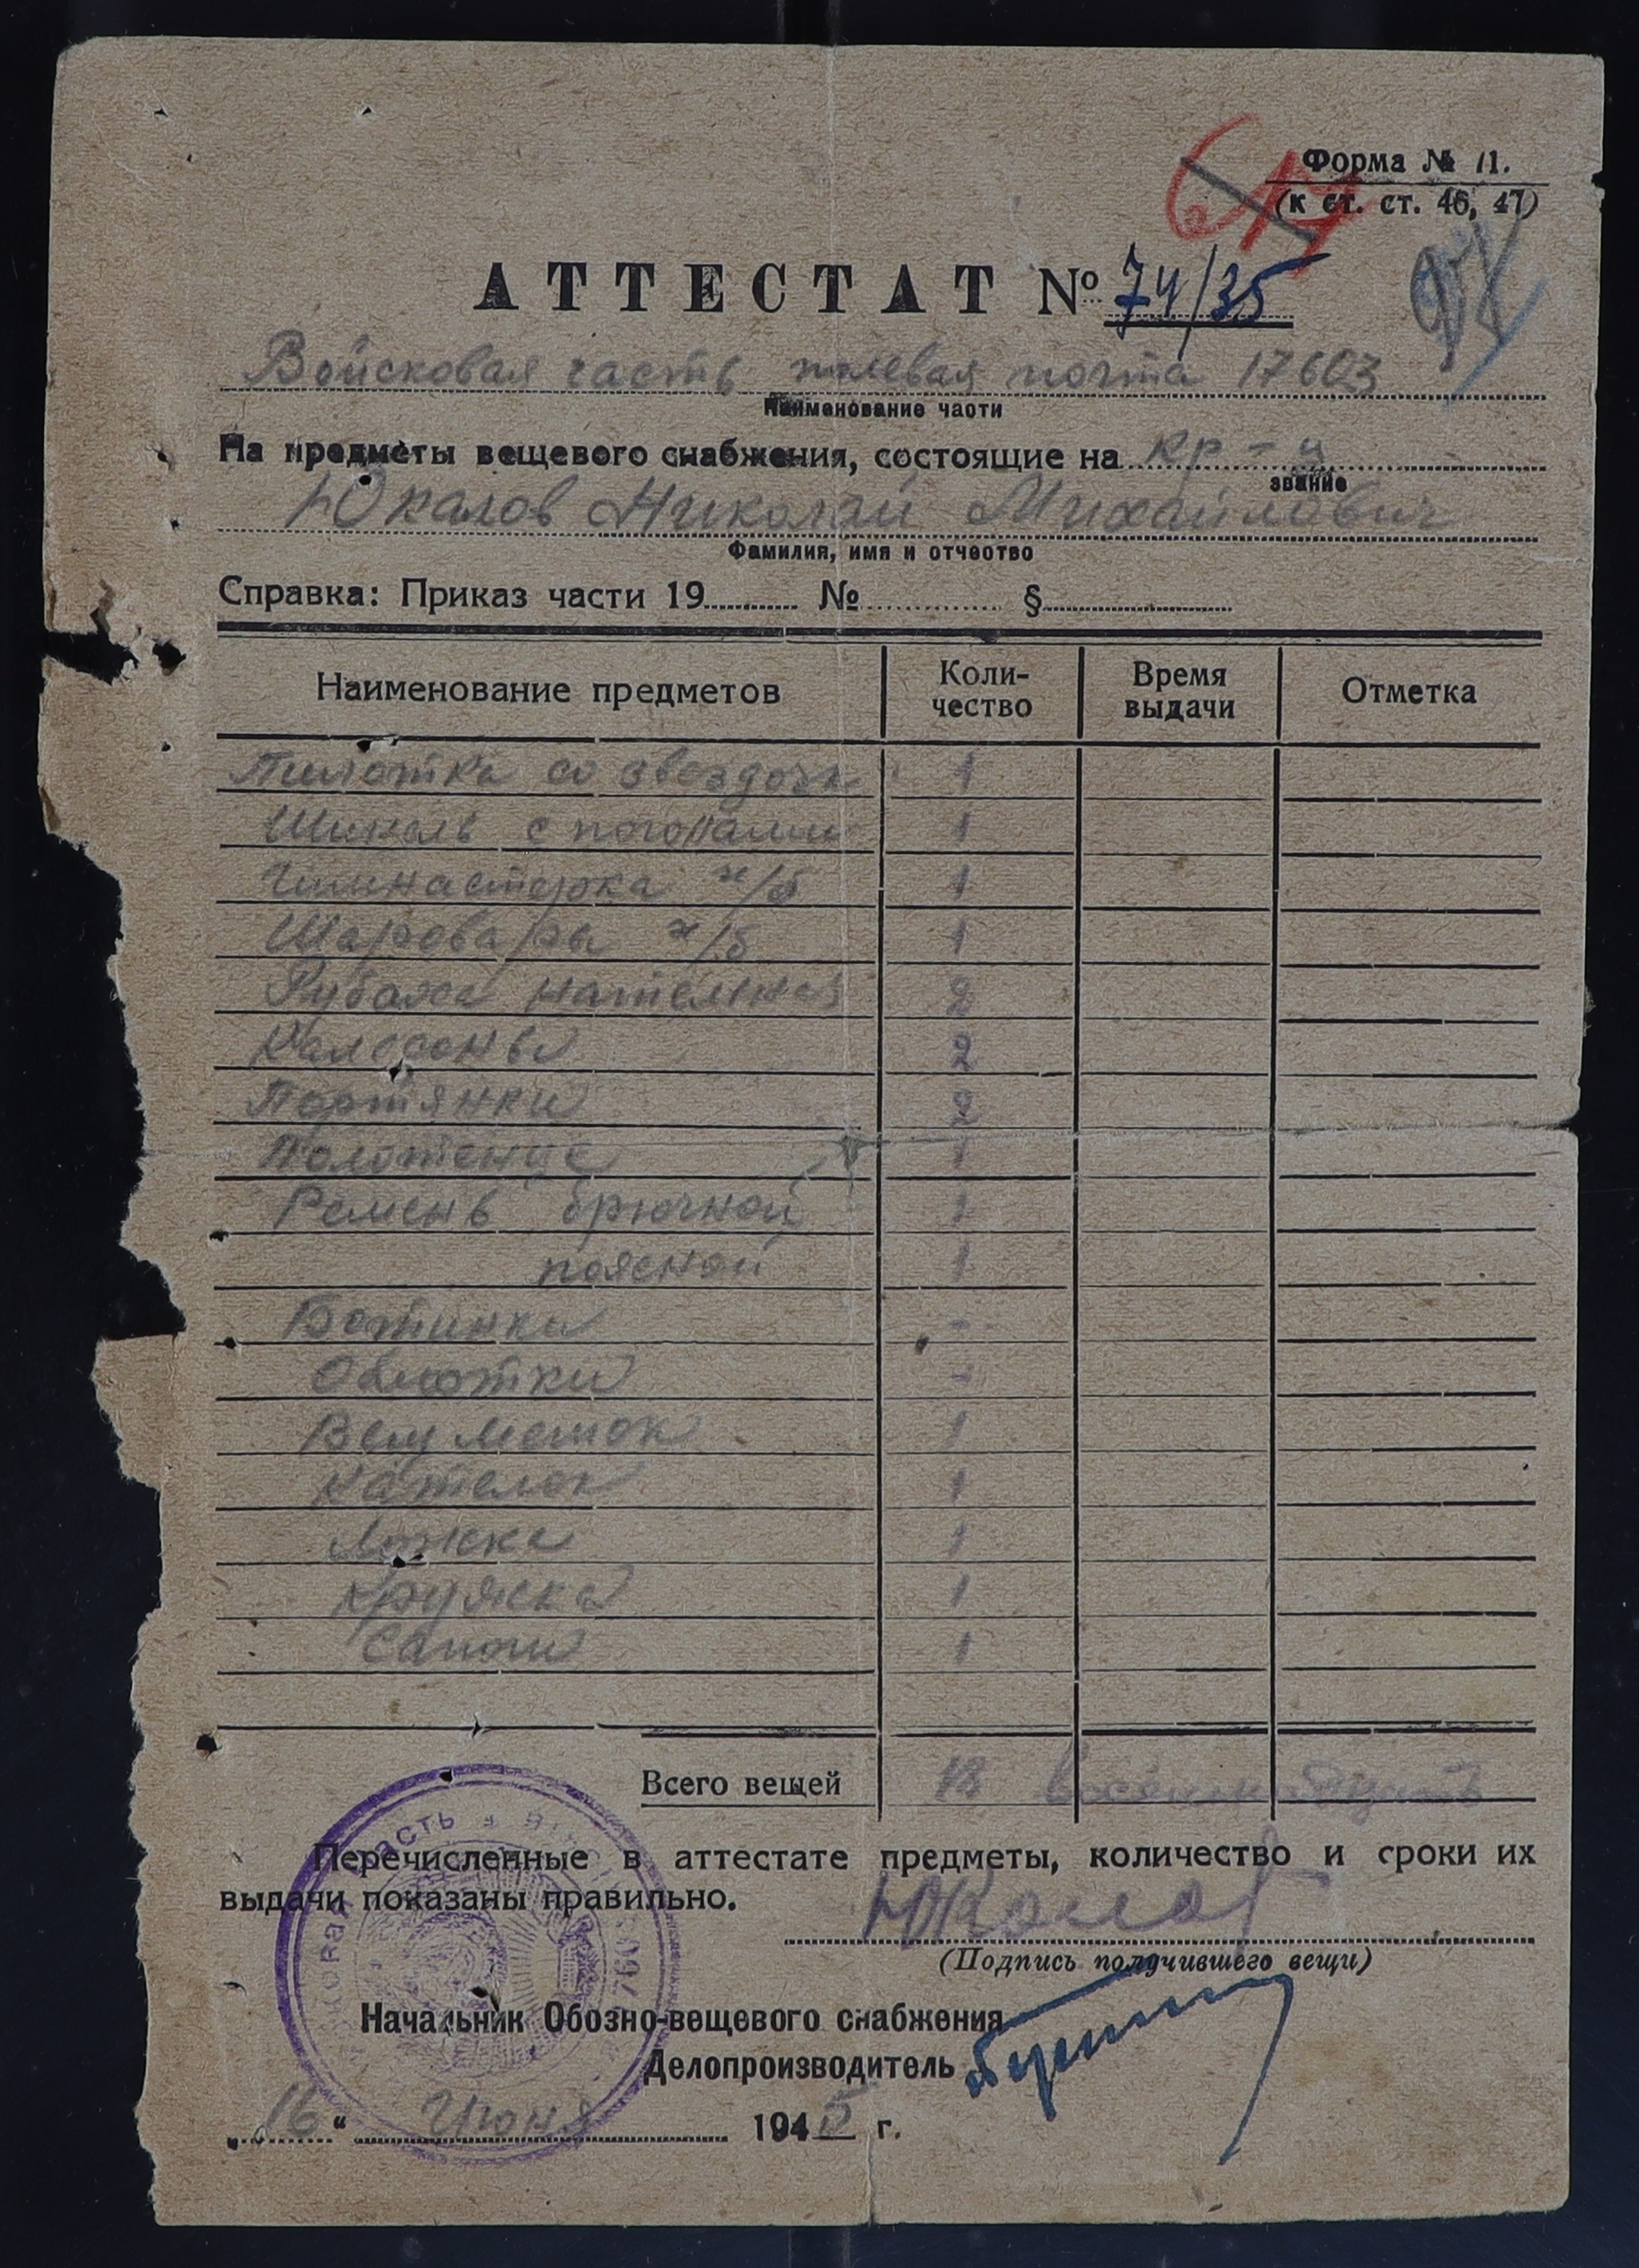 Форма № 11.
(к ст. ст. 46, 47)
АТТЕСТАТ № 74/35
Войсковая часть полевая почта 17603
Наименование части
На предметы вещевого снабжения, состоящие на кр-ц
звание
Юкалов Николай Михайлович
Фамилия, имя и отчество
Справка: Приказ части 19 № §
Наименование предметов Коли- Время Отметка
чество выдачи
Пилотка со звездочк 1
Шинель с погонами 1
Гимнастерка х/б 1
Шаровары х/б 1
Рубаха нательная 2
Калсоны 2
Портянки 2
Полотенце 1
Ремень брючной 1
поясной 1
Ботинки -
Обмотки -
Вещ мешок 1
Кателок 1
Ложка 1
Кружка 1
Сапоги 1
Всего вещей 18 восемнадцать
Перечисленные в аттестате предметы, количество и сроки их
выдачи показаны правильно.
Юкалов
(Подпись получившего вещи)
Начальник Обозно-вещевого снабжения
Делопроизводитель
„16“ Июня 1945 г.